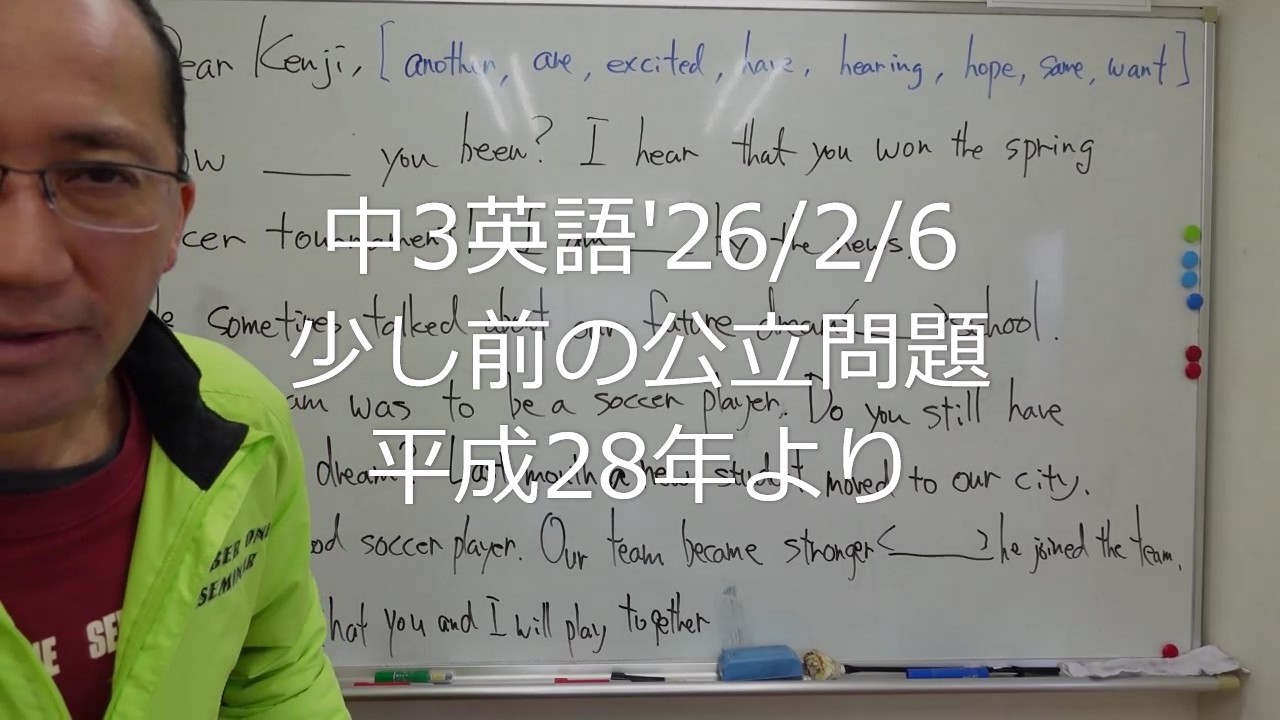 Dear Kenji, [another, are, excited, have, hearing, hope, same, want]
you been? I hear that you won the spring
tournament! I am by the news.
sometimes talked about our future dream( )school.
was to be a soccer player. Do you still have
dream? Last month a new student moved to our city.
soccer player. Our team became stronger( )he joined the team.
that you and I will play together
中3英語'26/2/6
少し前の公立問題
平成28年より
BER ONE
SEMINAR